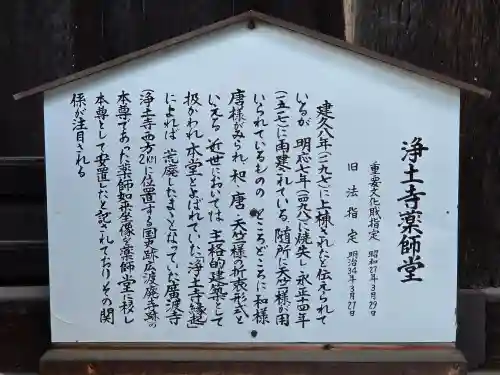 浄土寺薬師堂
重要文化財指定 昭和27年3月29日
旧法指定 明治34年3月27日
建久八年(一一九七)に上棟されたと伝えられて
いるが、明応七年(一四九八)に焼失し、永正十四年
(一五一七)に再建されている。随所に天竺様が用
いられているものの、ところどころに和様、
唐様がみられ、和・唐・天竺様の折衷形式と
いえる。近世においては、主格的建築として
扱かわれ、本堂とよばれていた。「浄土寺縁起」
によれば、荒廃したままとなっていた廣渡寺
(浄土寺西方2kmに位置する国史跡広渡廃寺跡)の
本尊であった薬師如来坐像を薬師堂に移し
本尊として安置したと記されておりその関
係が注目される